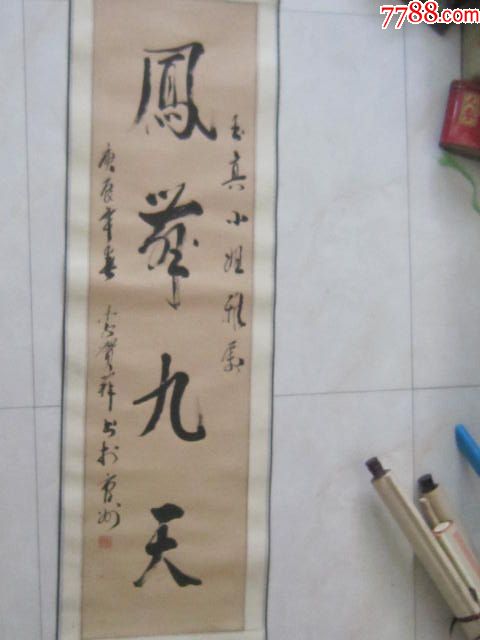 7788.com
玉真小姐雅属
鳳舞九天
庚辰年春
书于